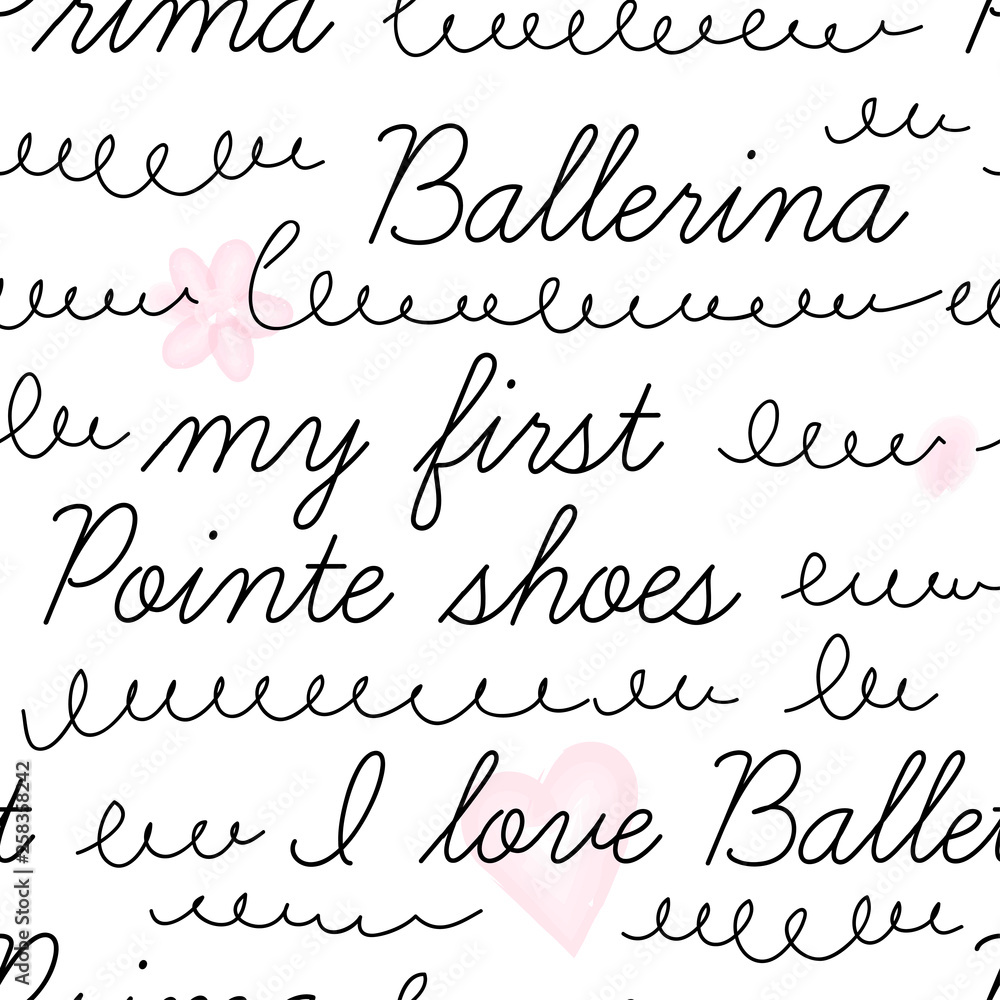 Prima
Ballerina
my first
Pointe shoes
I love Ballet
Prima
Adobe Stock | #258358242